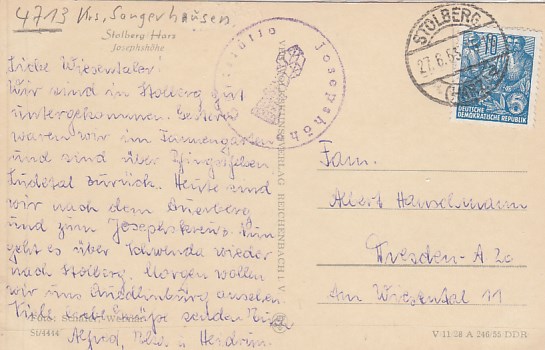 4713 Krs. Sangerhausen
Stolberg Harz
Josephshöhe
Liebe Wiesentaler!
Wir sind in Stolberg gut
untergekommen. Gestern
waren wir im Tannengarten
und sind über
zurück. Heute sind
wir nach dem Auerberg
und zum Josephskreuz. Nun
geht es über Schwenda wieder
nach Stolberg. Morgen wollen
wir uns Quedlinburg ansehen.
Viele senden
Alfred, und Heidrun
Foto:
St/4444
Josephshöh
VERLAG REICHENBACH I. V.
STOLBERG
27.6.65
(HARZ)
10
5
DEUTSCHE
DEMOKRATISCHE REPUBLIK
Fam.
Albert Hanschmann
Dresden-A 20
Am Wiesental 11
V-11-28 A 246/55 DDR